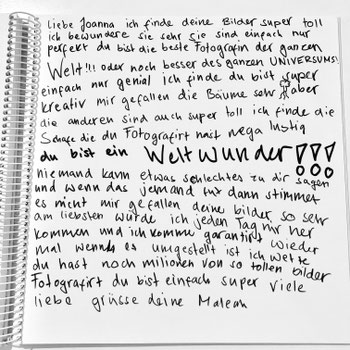 Liebe Joanna ich finde deine Bilder super toll
ich bewundere sie sehr Sie sind einfach nur
perfekt du bist die beste Fotografin der ganzen
Welt!!! oder noch besser des ganzen UNIVERSUMS!
einfach nur genial ich finde du bist super
kreativ mir gefallen die Bäume sehr aber
die anderen sind auch super toll ich finde die
Schafe die du Fotografirt hast mega lustig
du bist ein Weltwunder!!!
niemand kann etwas schlechtes zu dir sagen
und wenn das jemand tut dann stimmt
es nicht mir gefallen deine bilder so sehr
am liebsten würde ich jeden Tag hir her
kommen und ich komme garantirt wieder
mal wenn es umgestellt ist ich wette
du hast noch milionen von so tollen bilder
Fotografirt du bist einfach super viele
liebe grüsse deine